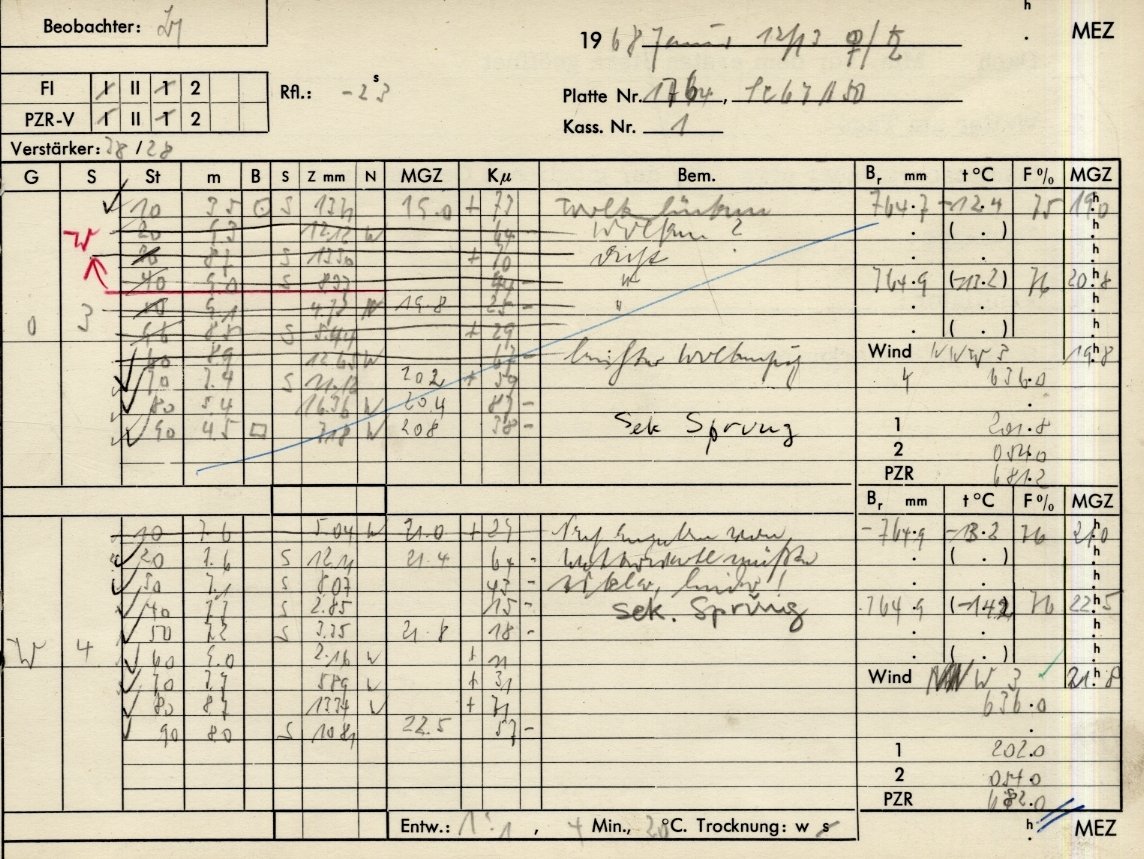 h
Beobachter:
19 68 Januar 12/13 ♀/♄ . MEZ
FI I II 1 2 Rfl.: -23 s
Platte Nr. 1764,
PZR-V I II 1 2
Kass. Nr. 1
Verstärker: 28/28
G S St m B S Z mm N MGZ Kμ Bem. Br mm t °C F % MGZ
10 3.5 ⊙ S 19.0 + 73 Wolkenlücken 764.7 -12.4 75 19.0 h
W 20 9.3 12.12 W 64 - Wolken? . ( . ) h
30 8.7 S 13.30 + 70 . . h
40 9.0 S - " 764.9 (-13.2) 76 20.8 h
0 3 50 9.1 4.72 N 19.8 25 - " . . h
S 5.44 + 29 . ( . ) h
60 8.9 12.65 W 67 - Wind WNW 3 19.8 h
70 7.4 S 11.12 20.2 + 59 4 636.0
80 5.4 16.36 W 20.4 87 - .
90 4.5 □ 7.18 W 20.8 38 - Sek Sprung 1 201.8
2 054.0
PZR 681.2
Br mm t °C F % MGZ
10 7.6 5.04 W 21.0 + 27 -764.9 -13.2 76 21.0 h
20 7.6 S 12.11 21.4 64 - . ( . ) h
30 7.1 S 8.07 43 - . . h
40 7.7 S 2.85 15 - Sek. Sprung 764.9 (-14.2) 76 22.5 h
50 7.2 S 3.35 21.8 18 - . . h
W 4 60 9.0 2.16 W + 11 . ( . ) h
70 7.7 5.89 W + 31 Wind NNW 3 21.8 h
80 8.7 13.34 W + 71 636.0
90 8.0 S 10.81 22.5 57 - .
1 202.0
2 054.0
PZR 682.0
Entw.: 1:1, 4 Min., 20 °C. Trocknung: w s h . MEZ